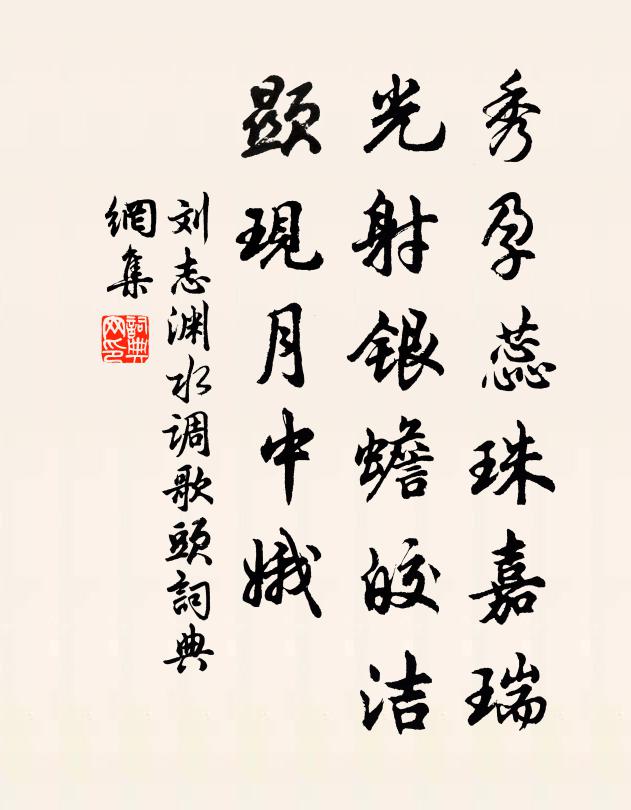 秀孕蕊珠嘉瑞
光射银蟾皎洁
顯現月中娥
刘志渊水调歌頭詞典
網集
詞典
网印